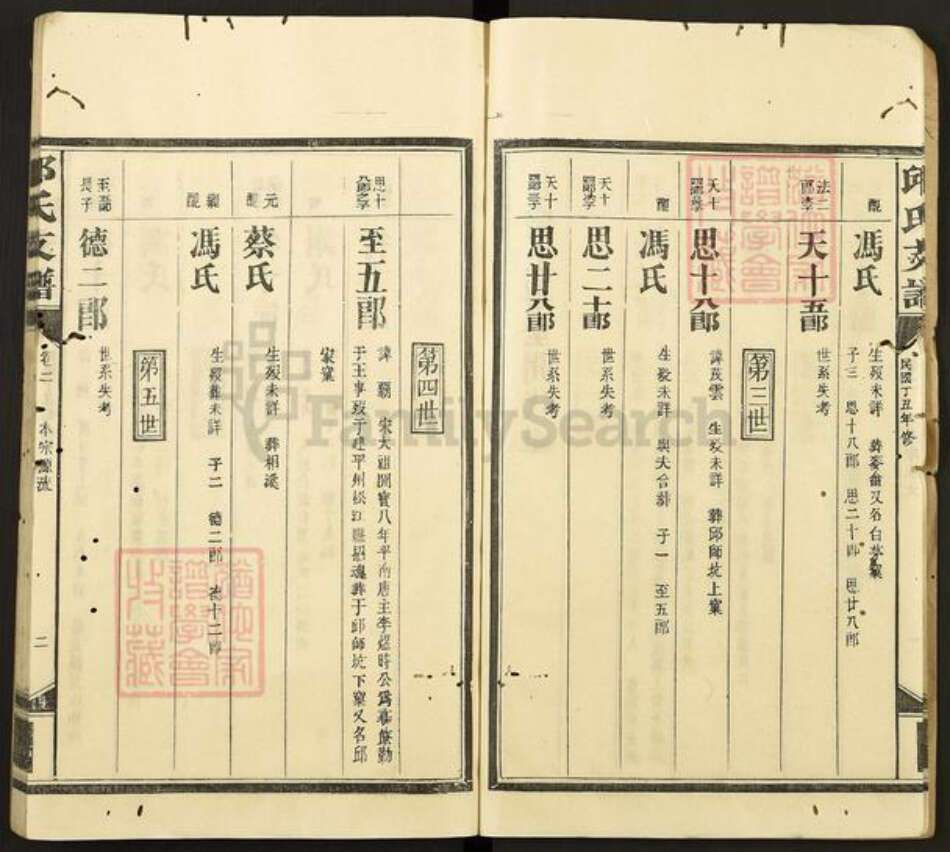 邱氏支譜
民國丁丑年修
配
馮氏
生歿未詳 葬麥畬又名白茅窠
子三 思十八郎 思二十郎 思廿八郎
法二郎李
天十五郎
世系失考
第三世
思十八郎
諱茂雲 生歿未詳 葬邱師坑上窠
配
馮氏
生歿未詳 與夫合葬 子一 至五郎
思二十郎
世系失考
思廿八郎
世系失考
第四世
至五郎
諱 朝 宋太祖開寶八年平南唐主李煜時公為
于王事歿于建平州松江 招魂葬于邱師坑下窠又名邱
家窠
元配
蔡氏
生歿未詳 葬相溪
繼配
馮氏
生歿葬未詳 子二 德二郎 德十二郎
第五世
至五郎長子
德二郎
世系失考
邱氏支譜
卷二
本宗源流
二
FamilySearch
譜學會
收藏